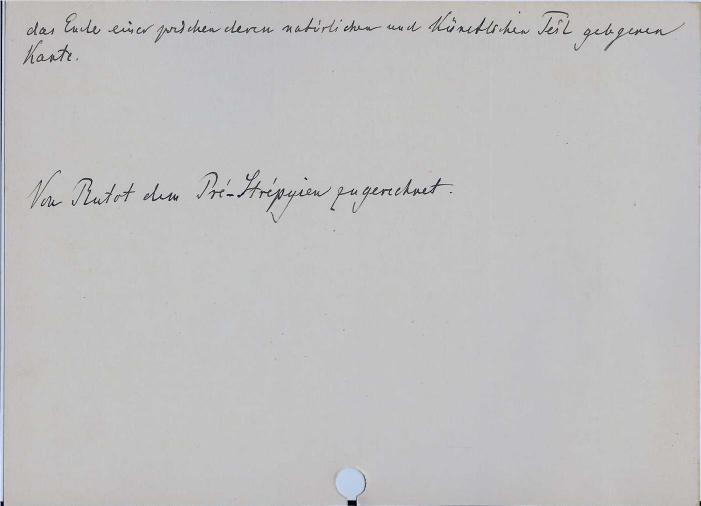 das Ende einer zwischen deren natürlichen und künstlichen Teil gelegenen
Kante.
Von Rutot dem Pré-Strépyien zugerechnet.